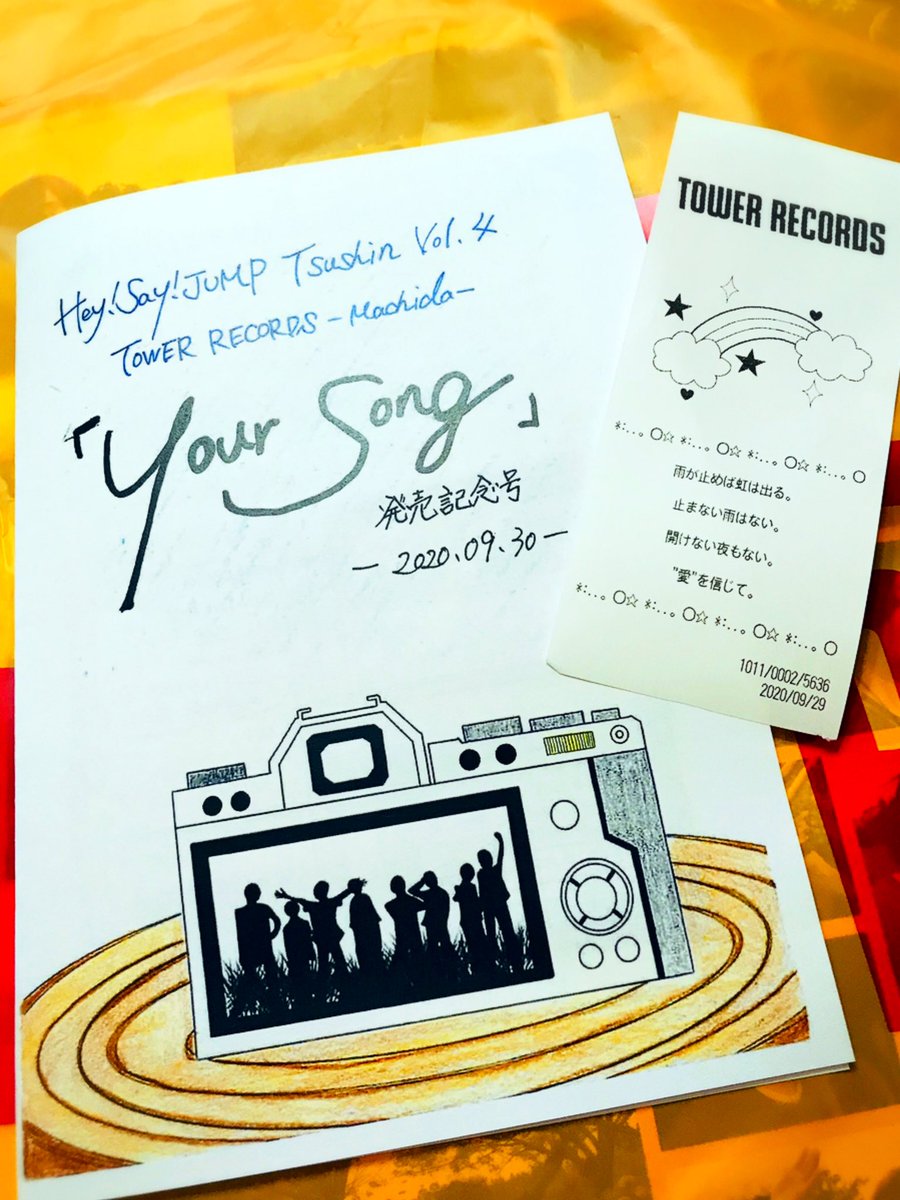 Hey!Say!JUMP Tsushin Vol.4
TOWER RECORDS -Machida-
「Your Song」
発売記念号
- 2020.09.30 -
TOWER RECORDS
*:..。○☆*:..。○☆*:..。○☆*:..。○
雨が止めば虹は出る。
止まない雨はない。
開けない夜もない。
"愛"を信じて。
*:..。○☆*:..。○☆*:..。○☆*:..。○
1011/0002/5636
2020/09/29